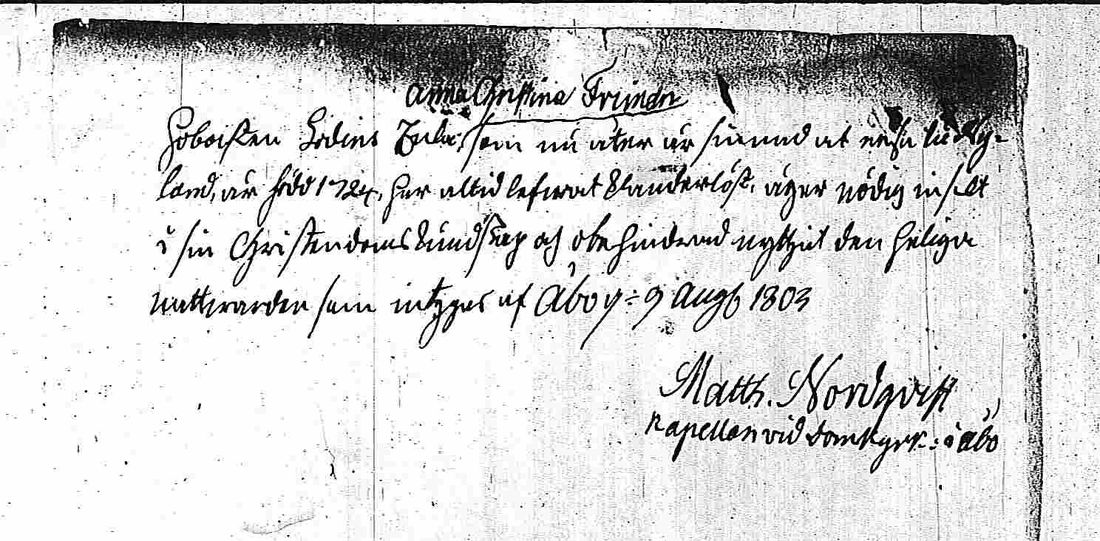 Anna Christina Friman
Hoboisten Lodins Enka, som nu åter är sinnad at resa til Ny-
land, är född 1724, har altid lefwat Klanderlöst, äger nödig insikt
i sin Christendoms Kundskap och obehindrad nyttjat den heliga
nattwarden som intygas af Åbo d: 9 Aug 1803
Matth. Nordqvist
Kapellan vid Domkyrk: i Åbo